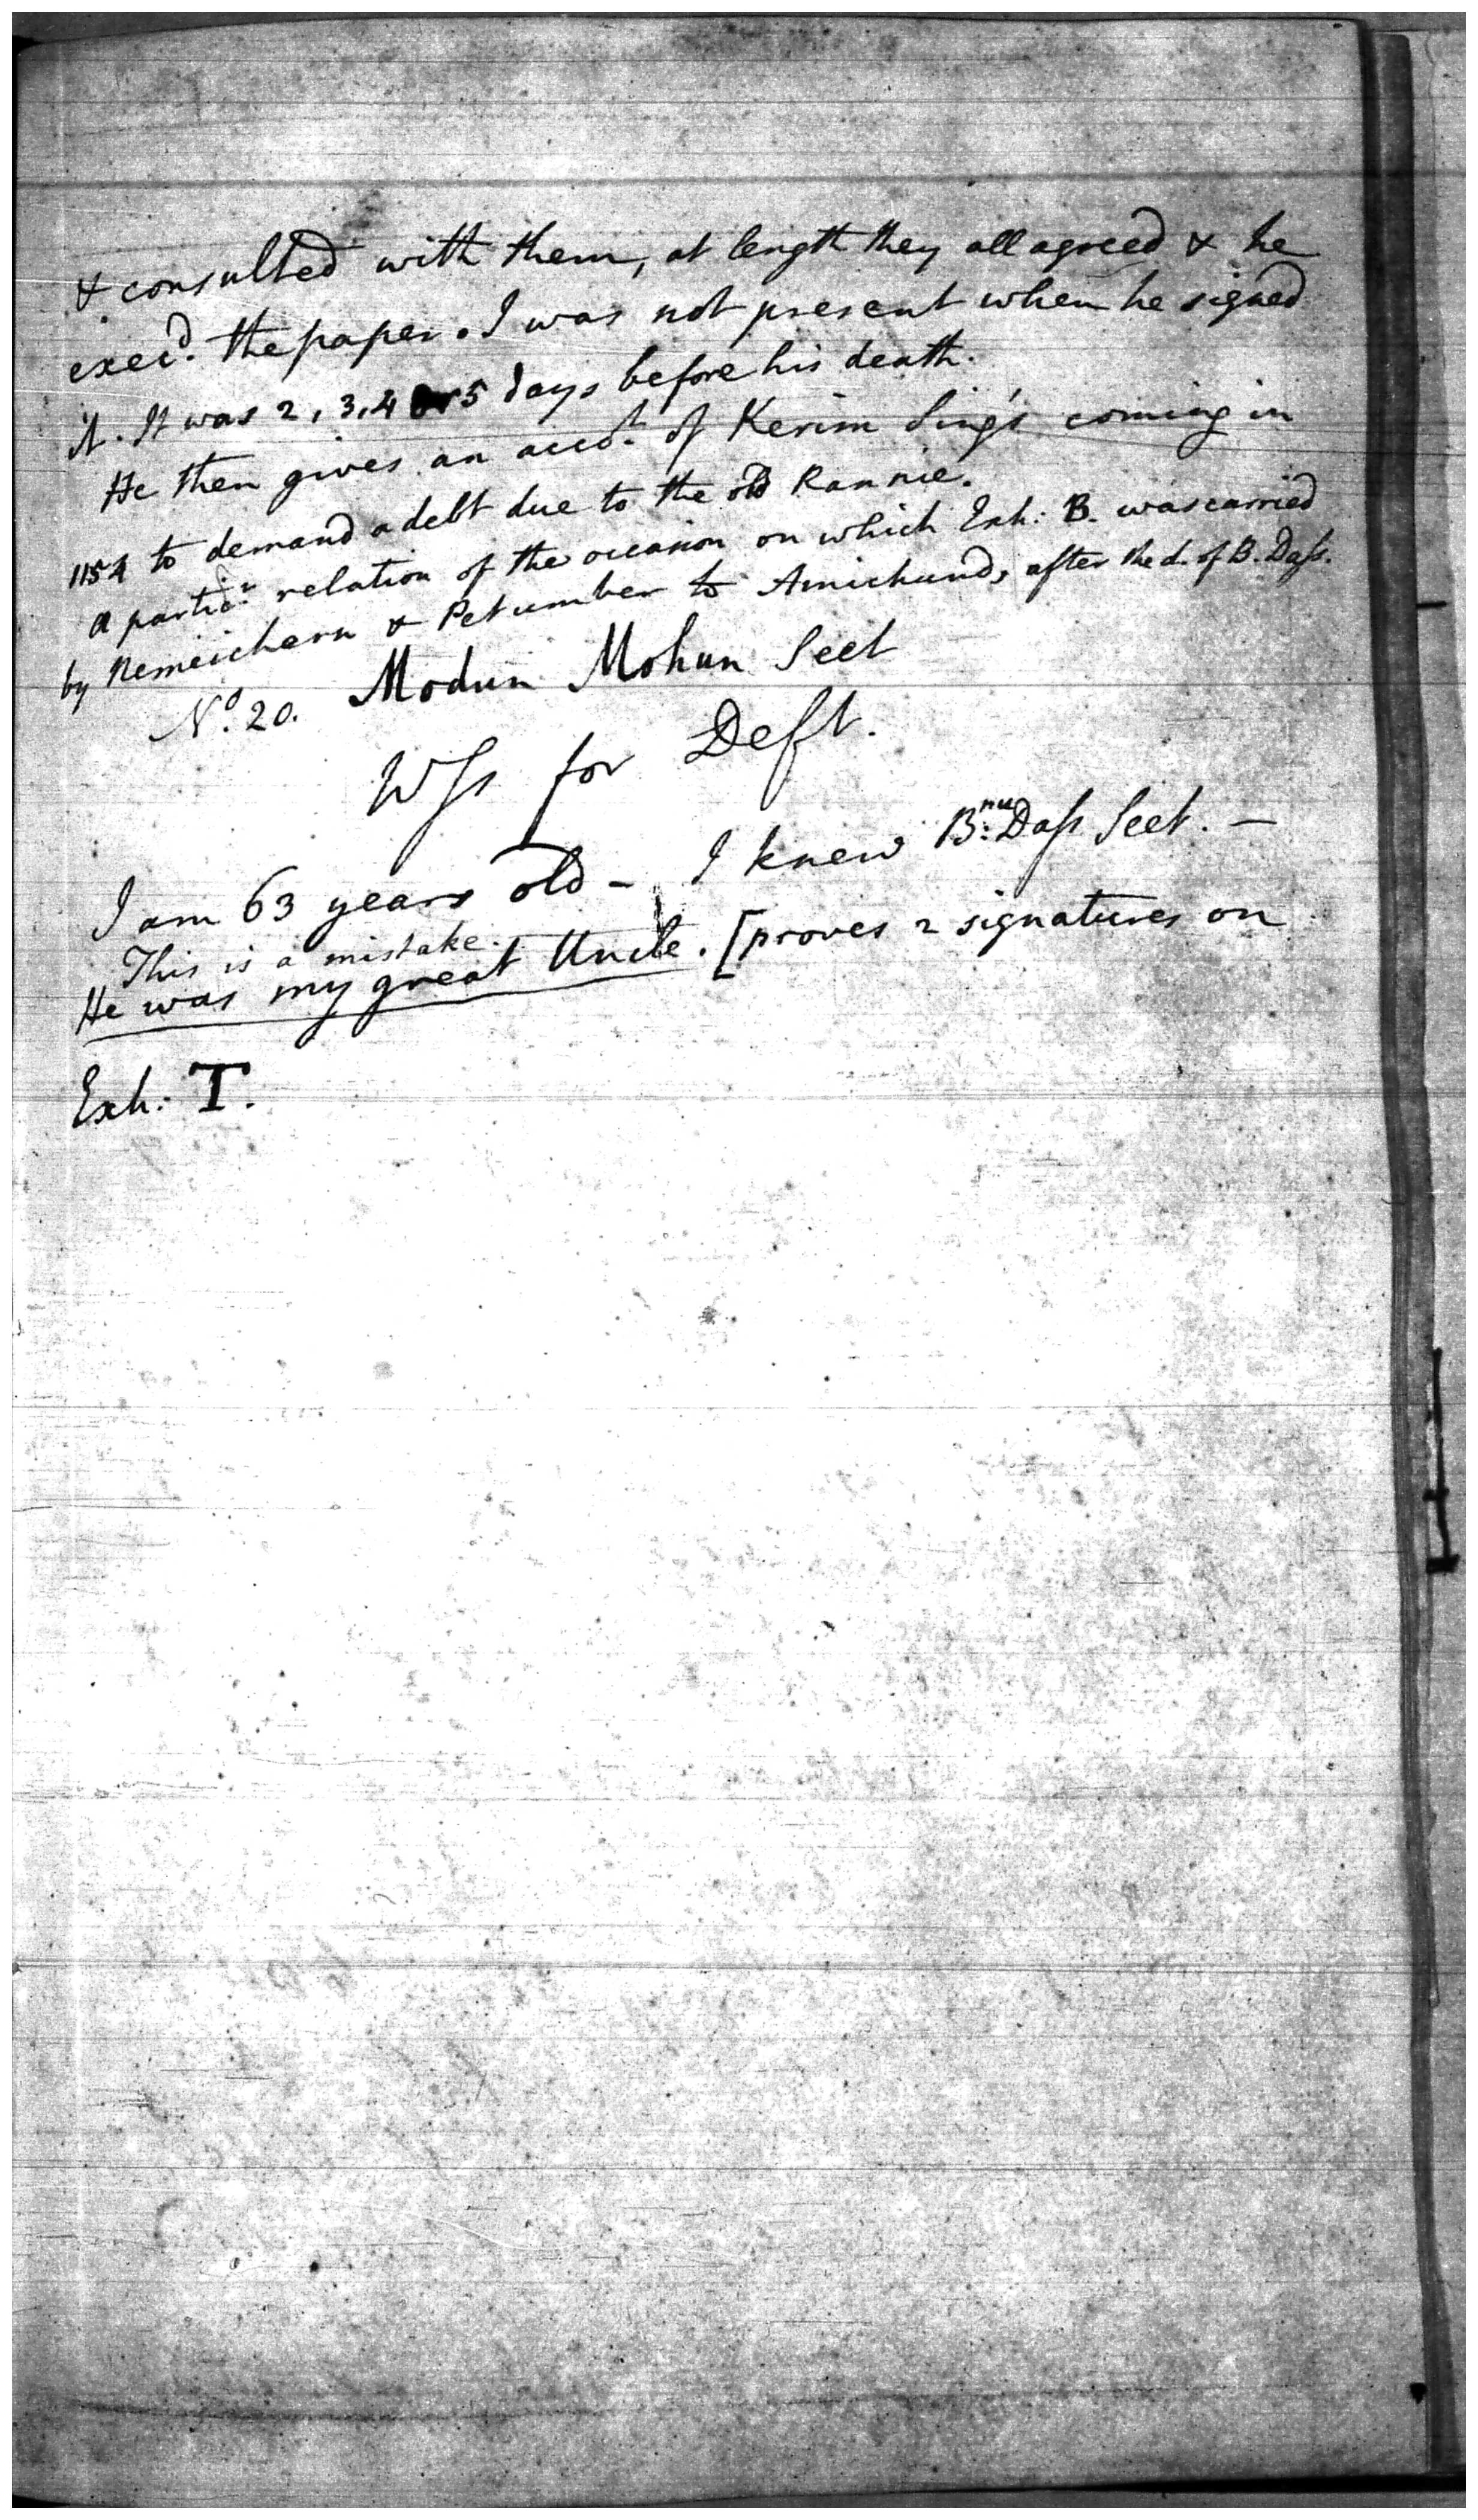 & consulted with them, at length they all agreed & he
exec.d the paper. I was not present when he signed
it. It was 2, 3, 4 or 5 days before his death.
He then gives an acco.t of Kerim Sing's coming in
1154 to demand a debt due to the old Rannie.
A partic.r relation of the occasion on which Exh: B. was carried
by Nemeichern & Petumber to Amichund, after the d. of B. Dass.
N.o 20. Modun Mohun Seet
Wss for Deft.
I am 63 years old – I knew B:nu Dass Seet. –
This is a mistake.
He was my great Uncle. [proves 2 signatures on
Exh: T.